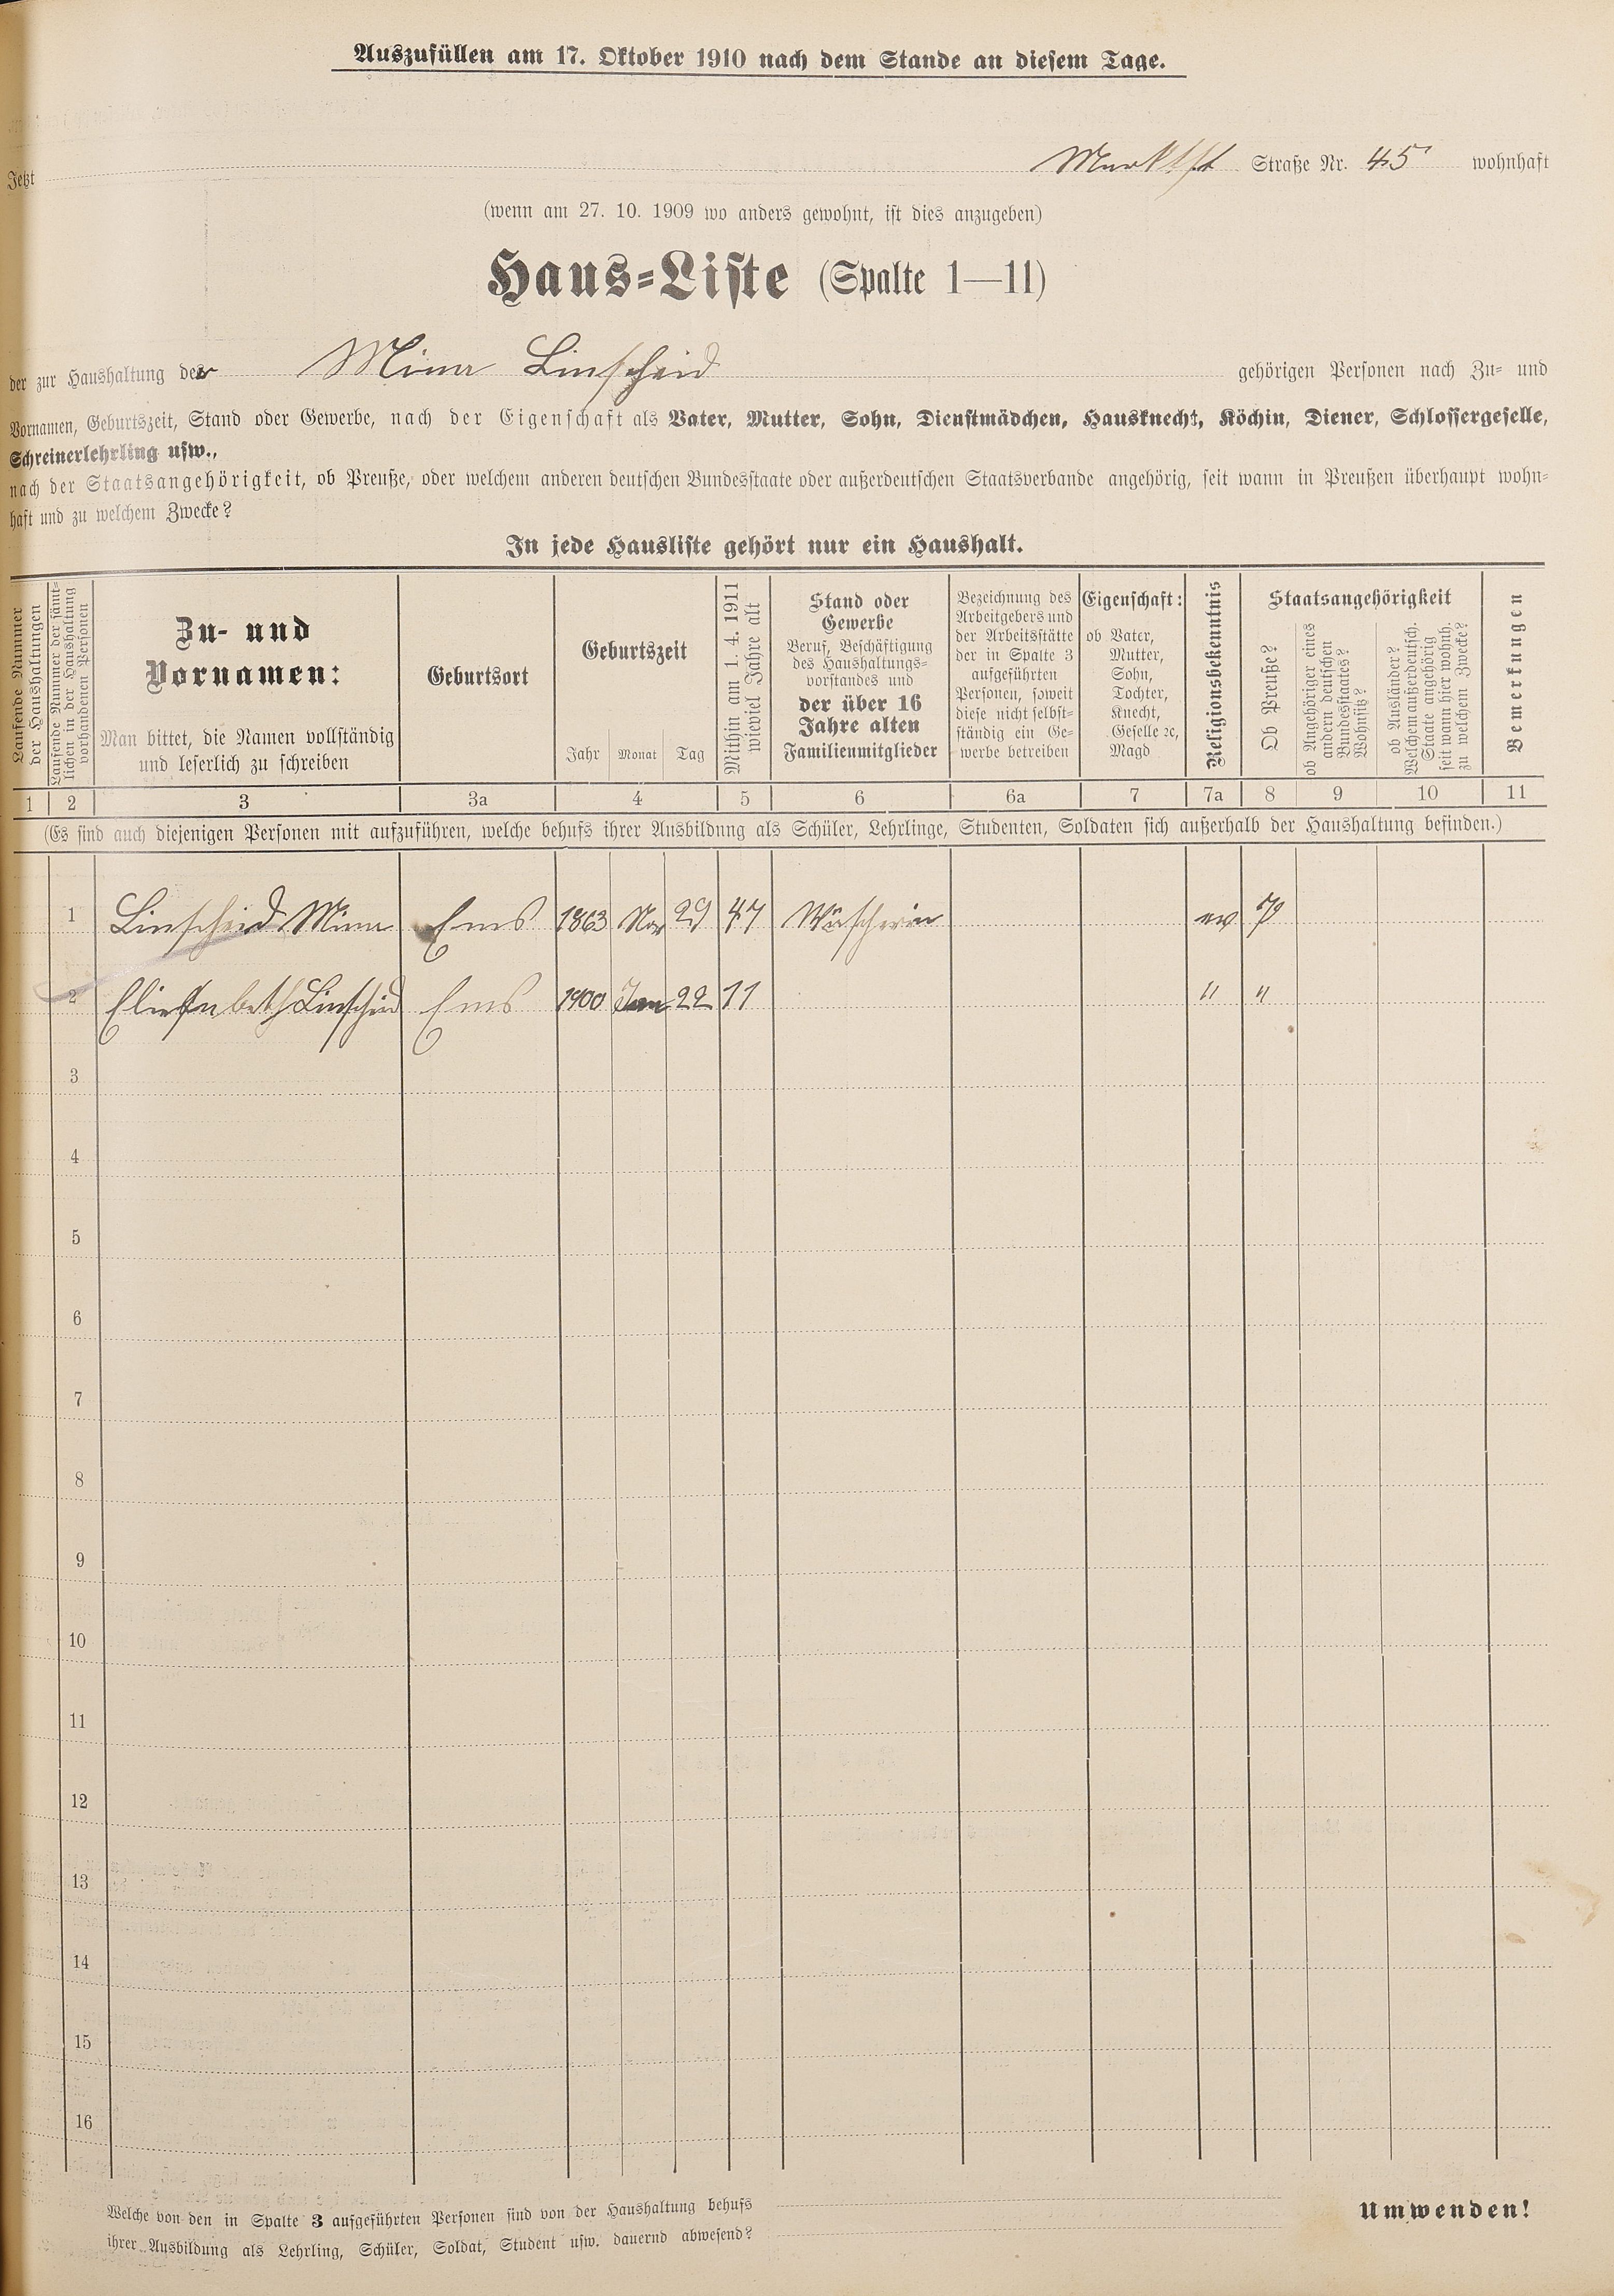 Auszufüllen am 17. Oktober 1910 nach dem Stande an diesem Tage.
Jetzt Marktst Straße Nr. 45 wohnhaft
(wenn am 27. 10. 1909 wo anders gewohnt, ist dies anzugeben)
Haus-Liste (Spalte 1—11)
der zur Haushaltung der Mina Linscheid gehörigen Personen nach Zu- und
Vornamen, Geburtszeit, Stand oder Gewerbe, nach der Eigenschaft als Vater, Mutter, Sohn, Dienstmädchen, Hausknecht, Köchin, Diener, Schlossergeselle,
Schreinerlehrling usw.,
nach der Staatsangehörigkeit, ob Preuße, oder welchem anderen deutschen Bundesstaate oder außerdeutschen Staatsverbande angehörig, seit wann in Preußen überhaupt wohn-
haft und zu welchem Zwecke?
In jede Hausliste gehört nur ein Haushalt.
Laufende Nummer
der Haushaltungen
Laufende Nummer der sämt-
lichen in der Haushaltung
vorhandenen Personen
Zu- und
Vornamen:
Man bittet, die Namen vollständig
und leserlich zu schreiben
Geburtsort
Geburtszeit
Jahr Monat Tag
Mithin am 1. 4. 1911
wieviel Jahre alt
Stand oder
Gewerbe
Beruf, Beschäftigung
des Haushaltungs-
vorstandes und
der über 16
Jahre alten
Familienmitglieder
Bezeichnung des
Arbeitgebers und
der Arbeitsstätte
der in Spalte 3
aufgeführten
Personen, soweit
diese nicht selbst-
ständig ein Ge-
werbe betreiben
Eigenschaft:
ob Vater,
Mutter,
Sohn,
Tochter,
Knecht,
Geselle ꝛc,
Magd
Religionsbekenntnis
Staatsangehörigkeit
Ob Preuße?
ob Angehöriger eines
andern deutschen
Bundesstaates?
Wohnsitz?
ob Ausländer?
Welchem außerdeutsch.
Staate angehörig
seit wann hier wohnh.
zu welchem Zwecke?
Bemerkungen
1 2 3 3a 4 5 6 6a 7 7a 8 9 10 11
(Es sind auch diejenigen Personen mit aufzuführen, welche behufs ihrer Ausbildung als Schüler, Lehrlinge, Studenten, Soldaten sich außerhalb der Haushaltung befinden.)
1 Linscheid Mina Ems 1863 Nov 29 47 Wäscherin ev P
2 Eliesabeth Linscheid Ems 1900 Jan 22 11 " "
3
4
5
6
7
8
9
10
11
12
13
14
15
16
Welche von den in Spalte 3 aufgeführten Personen sind von der Haushaltung behufs
ihrer Ausbildung als Lehrling, Schüler, Soldat, Student usw. dauernd abwesend?
Umwenden!